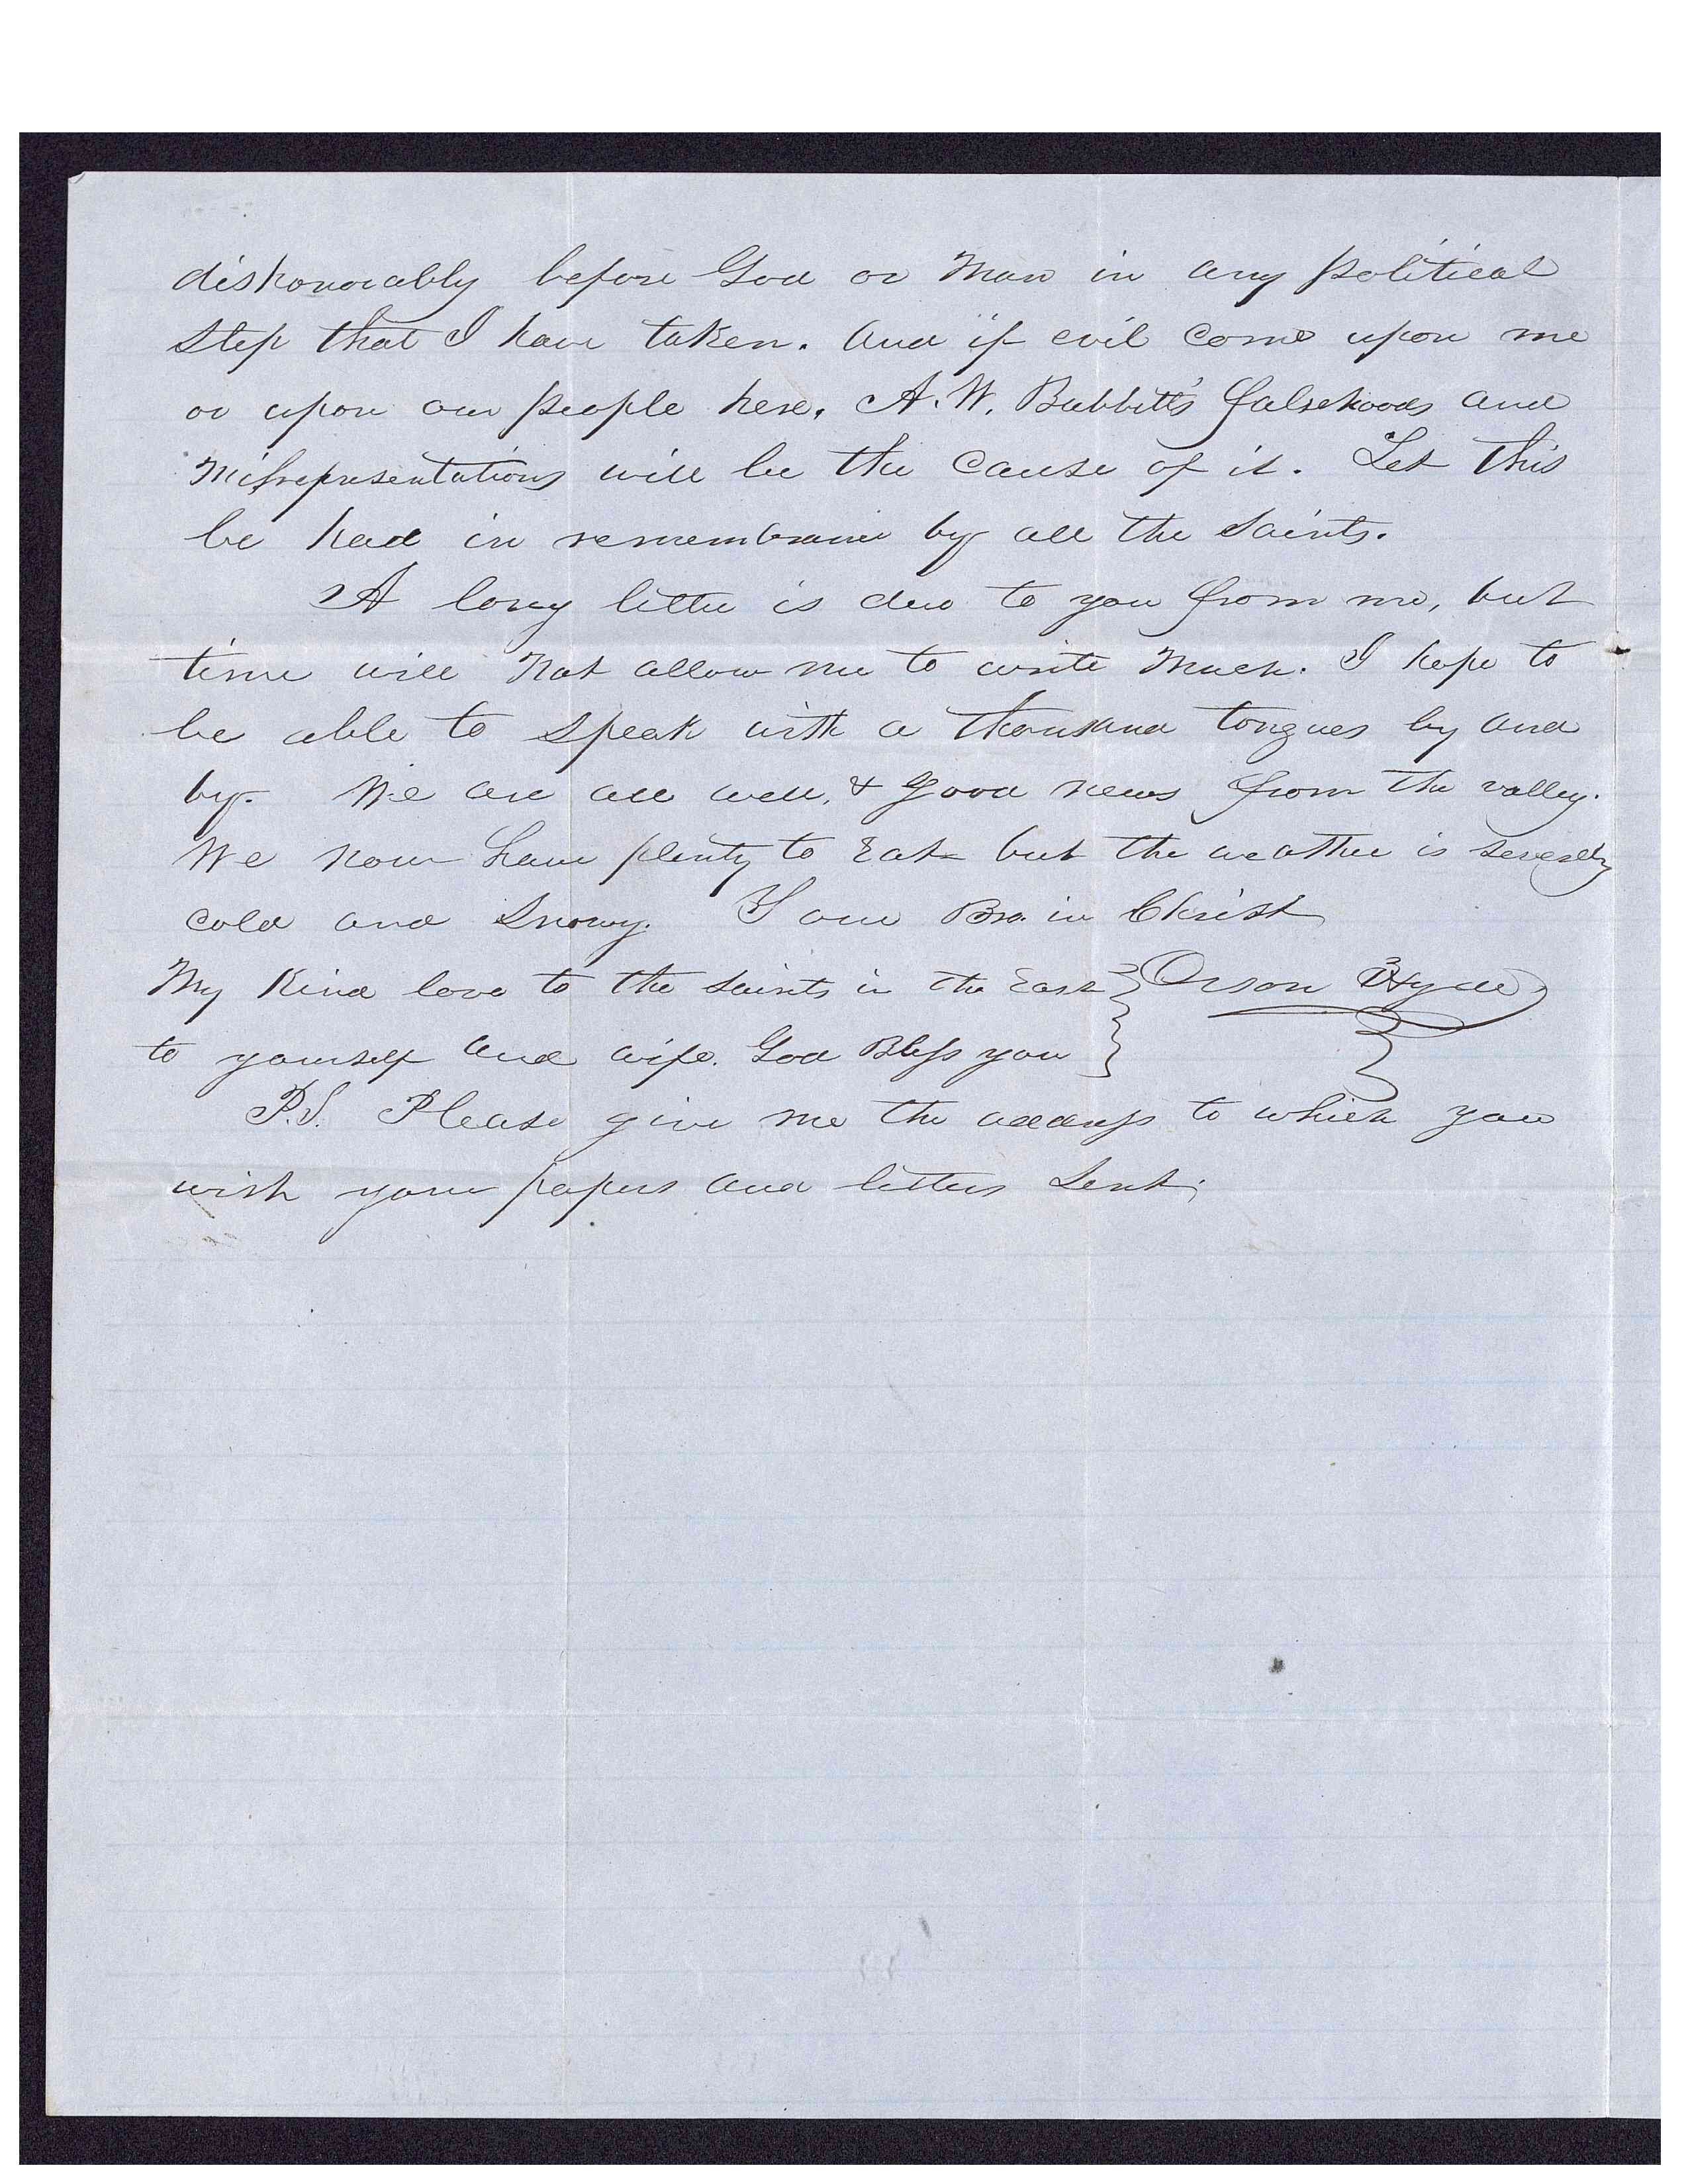 dishonorably before God or Man in any political
step that I have taken. And if evil come upon me
or upon our people here, A. W. Babbitt's falsehoods and
Misrepresentations will be the cause of it. Let this
be had in remembrance by all the Saints.
A long letter is due to you from me, but
time will not allow me to write much. I hope to
be able to speak with a thousand tongues by and
by. We are all well, & good news from the valley.
We now have plenty to Eat but the weather is severely
cold and snowy. Your Bro. in Christ
My Kind love to the saints in the East } Orson Hyde
to yourself and wife. God Bless you }
P.S. Please give me the address to which you
wish your papers and letters sent.